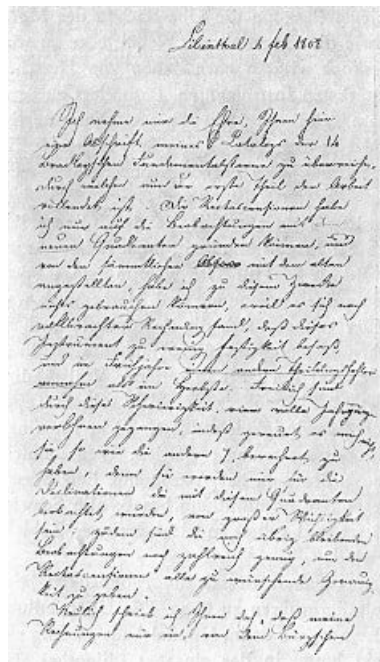 Lilienthal 4 feb 1808
Ich nehme mir die Ehre, Ihnen hier
eine Abschrift meines Catalogs der 14
Bradleyschen Fundamentalsterne zu überreichen,
durch welchen nun der erste Theil der Arbeit
vollendet ist. Die Rectascensionen habe
ich nur auf die Beobachtungen mit
neuen Quadranten gründen können, und
von den sämmtlichen mit dem alten
angestellten, habe ich zu diesem Zwecke
nichts gebrauchen können, weil es sich nach
vollbrachter Rechnung fand, daß dieses
Instrument zu wenig Festigkeit besaß
und im Frühjahre einen andern
als im Herbste. Freilich sind
durch diese Schwierigkeit, vier volle Jahrgänge
verlohren gegangen, indeß gereuet es mich nicht,
sie, so wie die andern 7, berechnet zu
haben; denn sie werden mir für die
Declinationen die mit diesem Quadranten
beobachtet wurden, von großer Wichtigkeit
sein; zudem sind die noch übrig bleibenden
Beobachtungen noch zahlreich genug, um den
Rectascensionen alle zu wünschende Genauig
keit zu geben.
Neulich schrieb ich Ihnen daß meine
Rechnungen mir von dem Bürgschen